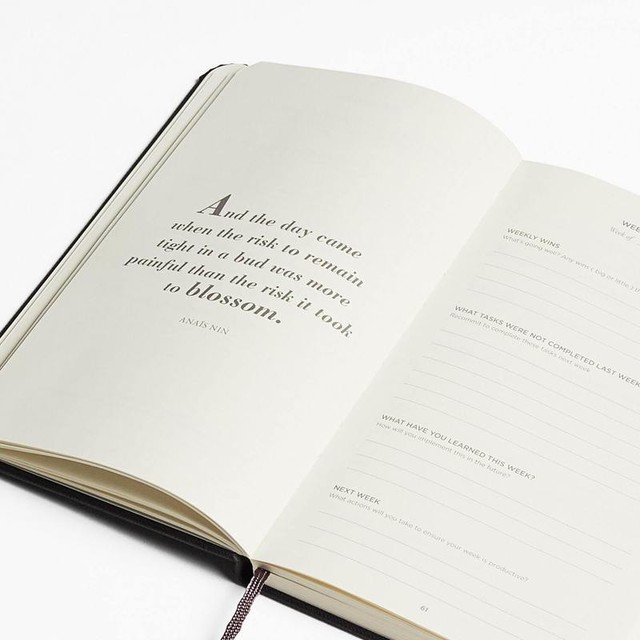 And the day came
when the risk to remain
tight in a bud was more
painful than the risk it took
to blossom.
ANAÏS NIN
WEE
Week of
WEEKLY WINS
What's going well? Any wins (big or little)
WHAT TASKS WERE NOT COMPLETED LAST WEEK
Recommit to complete these tasks next week
WHAT HAVE YOU LEARNED THIS WEEK?
How will you implement this in the future?
NEXT WEEK
What actions will you take to ensure your week is productive?
61